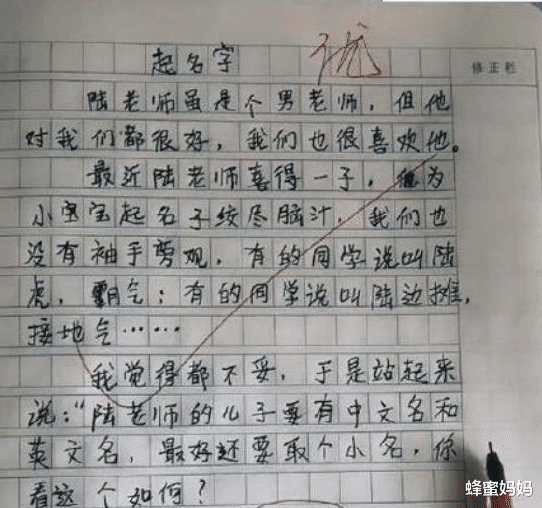 起名字
优
修正栏
陆老师虽是个男老师，但他
对我们都很好，我们也很喜欢他。
最近陆老师喜得一子，他为
小宝宝起名子绞尽脑汁，我们也
没有袖手旁观，有的同学说叫陆
虎，霸气；有的同学说叫陆边摊，
接地气……
我觉得都不妥，于是站起来
说："陆老师的儿子要有中文名和
英文名，最好还要取个小名，你
看这个如何？
蜂蜜妈妈